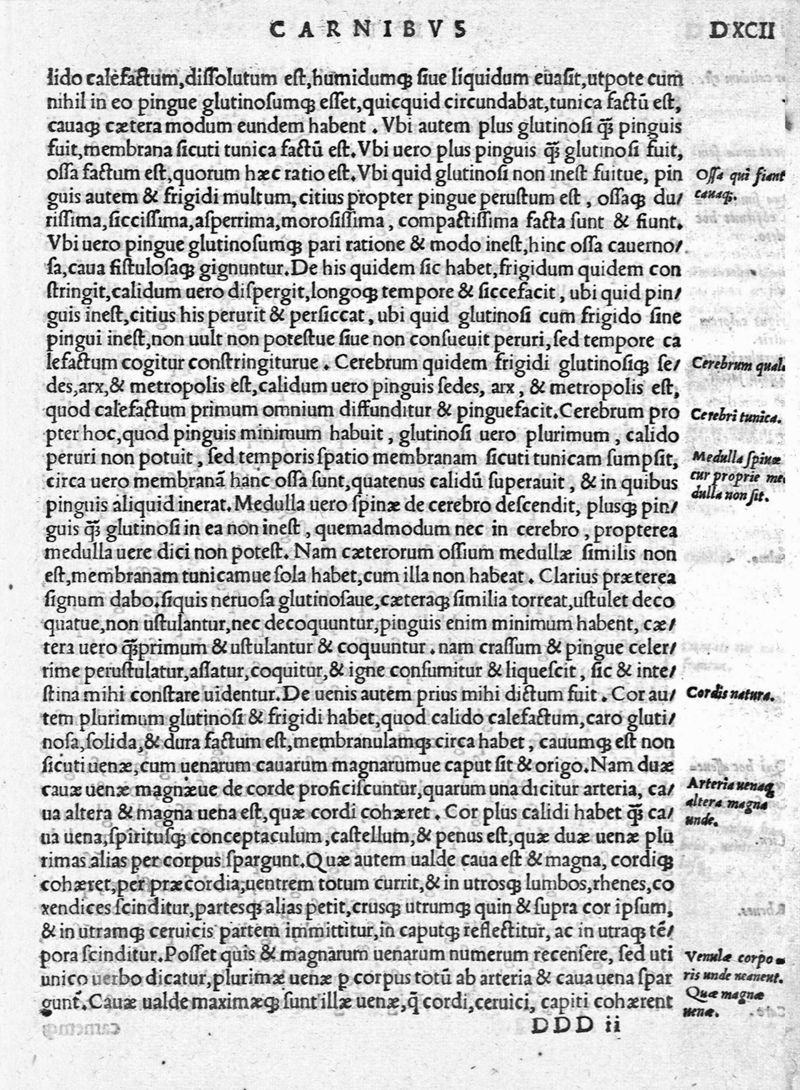 CARNIBVS DXCII
lido calefactum,dissolutum est,humidumq́; siue liquidum euasit,utpote cum
nihil in eo pingue glutinosumq́; esset,quicquid circundabat,tunica factũ est,
cauaq́; cætera modum eundem habent. Vbi autem plus glutinosi q̃ȝ pinguis
fuit,membrana sicuti tunica factũ est.Vbi uero plus pinguis q̃ȝ glutinosi fuit,
ossa factum est,quorum hæc ratio est.Vbi quid glutinosi non inest fuitue, pin
Ossa qui fiant
guis autem & frigidi multum,citius propter pingue perustum est, ossaq́; du/
cauaq́;.
rissima,siccissima,asperrima,morosissima, compactissima facta sunt & fiunt.
Vbi uero pingue glutinosumq́; pari ratione & modo inest,hinc ossa cauerno/
sa,caua fistulosaq́; gignuntur.De his quidem sic habet,frigidum quidem con
stringit,calidum uero dispergit,longoq́; tempore & siccefacit, ubi quid pin/
guis inest,citius his perurit & persiccat, ubi quid glutinosi cum frigido sine
pingui inest,non uult non potestue siue non consueuit peruri,sed tempore ca
lefactum cogitur constringiturue. Cerebrum quidem frigidi glutinosiq́; se/
Cerebrum quale
des,arx,& metropolis est,calidum uero pinguis sedes, arx, & metropolis est,
quod calefactum primum omnium diffunditur & pinguefacit.Cerebrum pro
Cerebri tunica.
pter hoc,quod pinguis minimum habuit, glutinosi uero plurimum, calido
peruri non potuit, sed temporis spatio membranam sicuti tunicam sumpsit,
Medulla spinæ
circa uero membranã hanc ossa sunt,quatenus calidũ superauit, & in quibus
cur proprie me
pinguis aliquid inerat.Medulla uero spinæ de cerebro descendit, plusq́; pin/
dulla non sit.
guis q̃ȝ glutinosi in ea non inest, quemadmodum nec in cerebro, propterea
medulla uere dici non potest. Nam cæterorum ossium medullæ similis non
est,membranam tunicamue sola habet,cum illa non habeat. Clarius præterea
signum dabo.siquis neruosa glutinosaue,cæteraq́; similia torreat,ustulet deco
quatue,non ustulantur,nec decoquuntur,pinguis enim minimum habent, cæ/
tera uero q̃ȝprimum & ustulantur & coquuntur.nam crassum & pingue celer/
rime perustulatur,assatur,coquitur,& igne consumitur & liquescit, sic & inte/
stina mihi constare uidentur.De uenis autem prius mihi dictum fuit. Cor au/
Cordis natura.
tem plurimum glutinosi & frigidi habet,quod calido calefactum,caro gluti/
nosa,solida,& dura factum est,membranulamq́; circa habet, cauumq́; est non
sicuti uenæ,cum uenarum cauarum magnarumue caput sit & origo. Nam duæ
cauæ uenæ magnæue de corde proficiscuntur,quarum una dicitur arteria, ca/
Arteria uenaq́;
ua altera & magna uena est,quæ cordi cohæret. Cor plus calidi habet q̃ȝ ca/
altera magna
ua uena,spiritusq́; conceptaculum,castellum,& penus est,quæ duæ uenæ plu
unde.
rimas alias per corpus spargunt.Quæ autem ualde caua est & magna, cordiq́;
cohæret,per præcordia,uentrem totum currit,& in utrosq́; lumbos,rhenes,co
xendices scinditur,partesq́; alias petit,crusq́; utrumq́; quin & supra cor ipsum,
& in utramq́; ceruicis partem immittitur,in caputq́; reflectitur, ac in utraq́; tẽ/
pora scinditur.Posset quis & magnarum uenarum numerum recensere, sed uti
Venulæ corpo
unico uerbo dicatur,plurimæ uenæ p corpus totũ ab arteria & caua uena spar
ris unde meanent.
gunt. Cauæ ualde maximæq́; sunt illæ uenæ,q̃ cordi,ceruici, capiti cohærent
Quæ magnæ
uenæ.
DDD ii